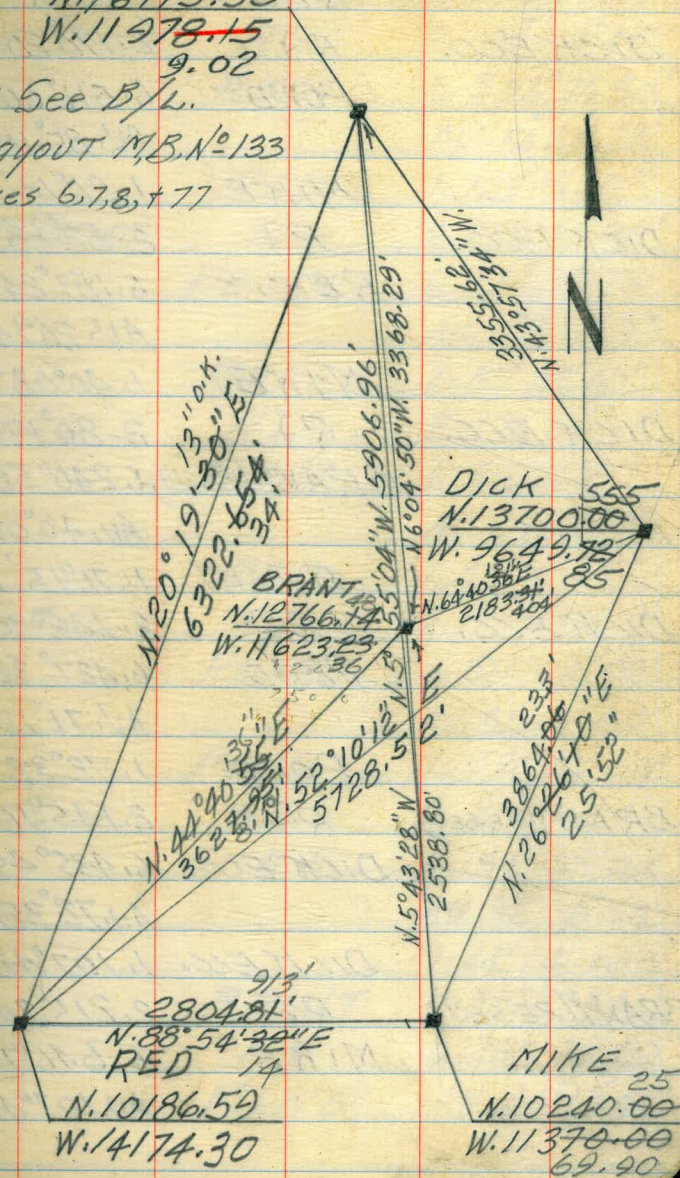 W.11978.15
9.02
See B/L.
ayout M.B. Nº 133
es 6,7,8,+77
N
3355.62' "W.
N.43°57'34
N.5°55'04"W. 5906.96'
N6°04'50"W. 3368.29'
13" O.K.
N.20°19'30"E
6322.654'
34'
DICK 555
N.13700.00
W. 9649.72
85
BRANT
N.12766.14
W.11623.23
36
N.64°40'36"E
2183.31'
404
36"
N.44°40'53"E
3627.95'
8.18
N.52°10'12"E
5728.52'
N.5°43'28"W
2538.80'
233'
3864.06
N.26°26'40"E
25'52"
913'
2804.81'
N.88°54'32"E
14
RED
N.10186.59
W.14174.30
MIKE
25
N.10240.00
W.11370.00
69.90